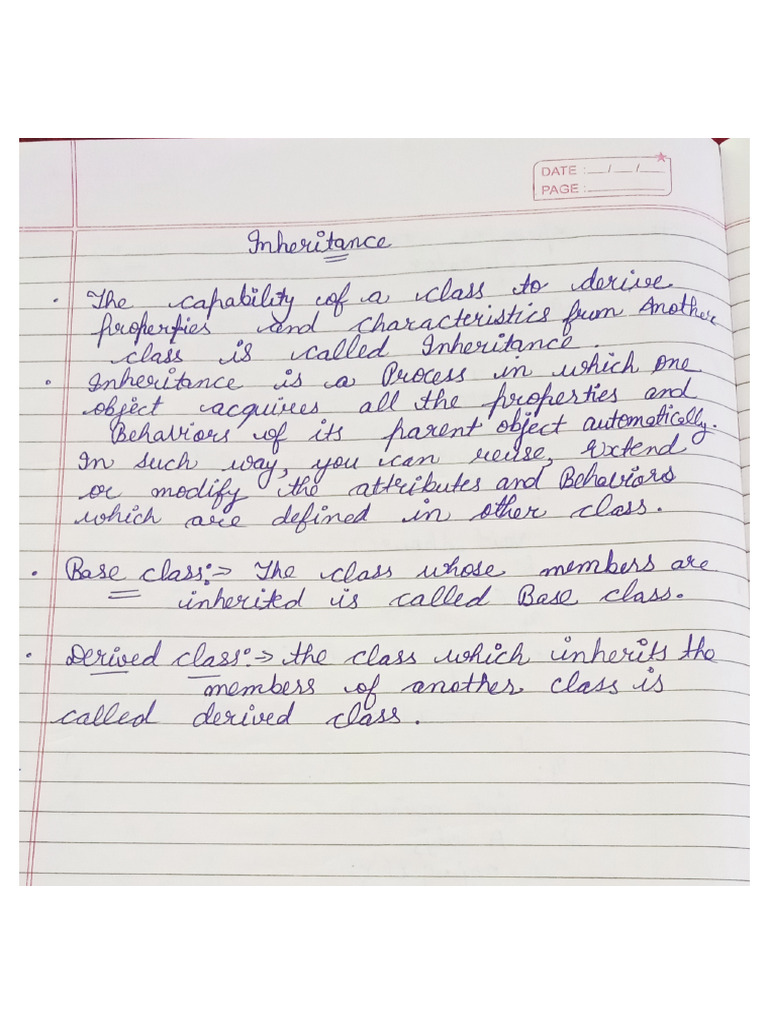 DATE : __/__/__
PAGE : ______
Inheritance
• The capability of a class to derive
properties and characteristics from Another
class is called Inheritance.
• Inheritance is a Process in which one
object acquires all the properties and
Behaviors of its parent object automatically.
In such way, you can reuse, Extend
or modify the attributes and Behaviors
which are defined in other class.
• Base class:-> The class whose members are
inherited is called Base class.
• Derived class:-> the class which inherits the
members of another class is
called derived class.